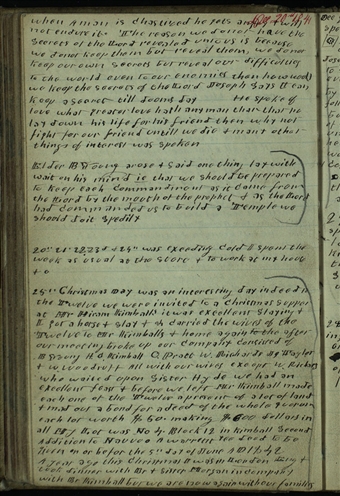 when A man is chastized he gets angry & will
not endure it. The reason we do not have the
Secrets of the Lord revealed unto us is because
we do not keep them but reveal them, we do not
keep our own Secrets but reveal our difficulties
to the world even to our enemies then how would
we keep the secrets of the Lord Joseph says I can
keep a Secret till Dooms day He spoke of
love what greater love hath any man than that he
lay down his life for his friend then why not
fight for our friend untill we die & many other
things of interest was spoken
Elder B Young arose & Said one thing lay with
wait on his mind ie that we should be prepared
to keep each Commandment as it came from
the Lord by the mouth of the prophet & as the Lord
had commanded us to build a Temple we
should do it Speedily
20th 21st 22 23 & 24th was exceding Cold I spent the
week as usual at the Store & to work at my house
25th Christmas day was an interesting day indeed
the Twelve we were invited to a Christmas Supper
at Mr Hiram Kimballs it was excellent Slaying &
H got a horse & slay & carried the wives of the
Twelve to Mr Kimballs & home again to the after
our meeting broke up our Company Consisted of
B Young H C Kimball O Pratt W Richards J Taylor
& W Woodruff All with our wives except W Richards
who waited upon Sister Hyde we had an
excellent feast & before we left Mr Kimball made
each one of the Twelve a present of a lot of land
& mad out a bond for a deed of the whole
each lot worth
all My lot was No 4 Block 12 in Kimball Second
Addition to Nauvoo A warrentee Deed to be
given on or before the 5th day of June AD 1842
A year ago this Christmas I was in London
with
with Mr Kimball but we are now again with our families